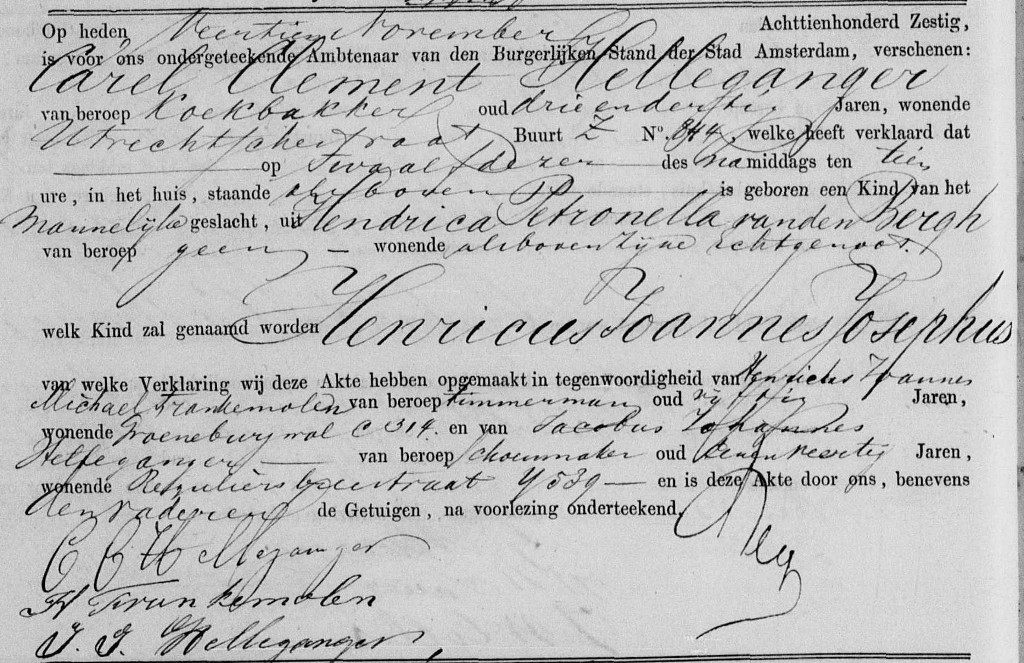 Op heden Veertien November Achttienhonderd Zestig,
is voor ons ondergeteekende Ambtenaar van den Burgerlijken Stand der Stad Amsterdam, verschenen:
Carel Clement Helleganger
van beroep Koekbakker oud drieendertig Jaren, wonende
Utrechtschestraat Buurt Z No. 844, welke heeft verklaard dat
op Twaalf dezer des namiddags ten tien
ure, in het huis, staande als boven is geboren een Kind van het
Mannelijke geslacht, uit Hendrica Petronella van den Bergh
van beroep geen wonende alsboven zijne echtgenoot.
welk Kind zal genaamd worden Henricus Joannes Josephus
van welke Verklaring wij deze Akte hebben opgemaakt in tegenwoordigheid van Henricus Joannes
Michael Frankemolen van beroep timmerman oud vijftig Jaren,
wonende Groeneburgwal C 314. en van Jacobus Johannes
Helleganger van beroep schoenmaker oud Jaren,
wonende Reguliersbreestraat Y 539 en is deze Akte door ons, benevens
den vader en de Getuigen, na voorlezing onderteekend.
C C Helleganger
H Frankemolen
J. J. Helleganger